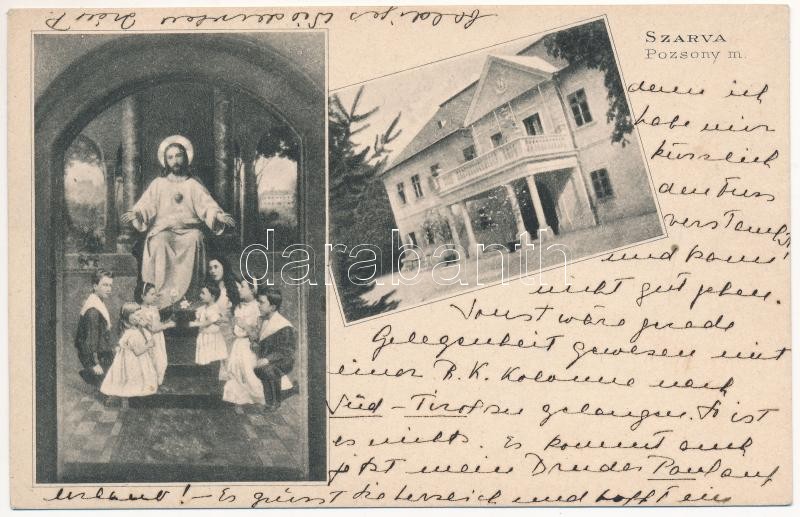 SZARVA
Pozsony m.
denn ich
habe mir
kürzlich
den Fuss
verstaucht
und kann
nicht gut gehen.
Sonst wäre grade
Gelegenheit gewesen mit
einer R. K. Kolonne nach
Süd-Tirol zu gelangen. So ist
es nichts. Es kommt auch
jetzt mein Bruder Paul auf
Urlaub! – Es grüsst Sie herzlich und hofft ein
baldiges Wiedersehen
darabanth